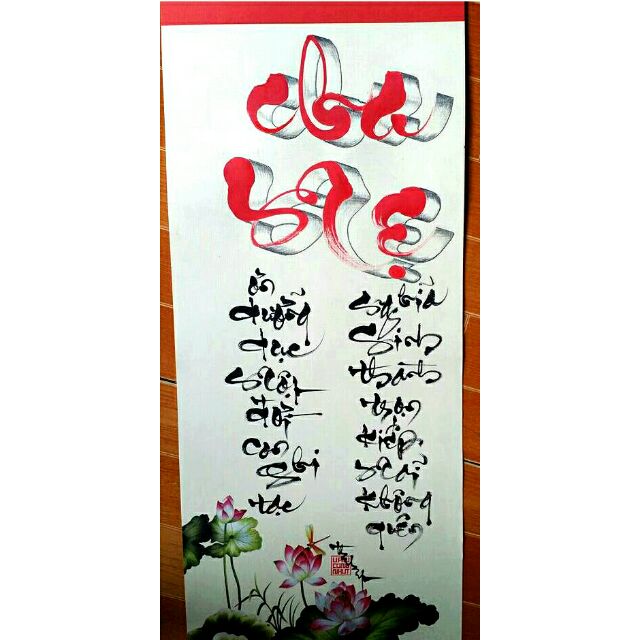 cha
Mẹ
ơn
dưỡng
dục
một
đời
con
ghi
tạc
nghĩa
sinh
thành
trọn
kiếp
mãi
không
quên